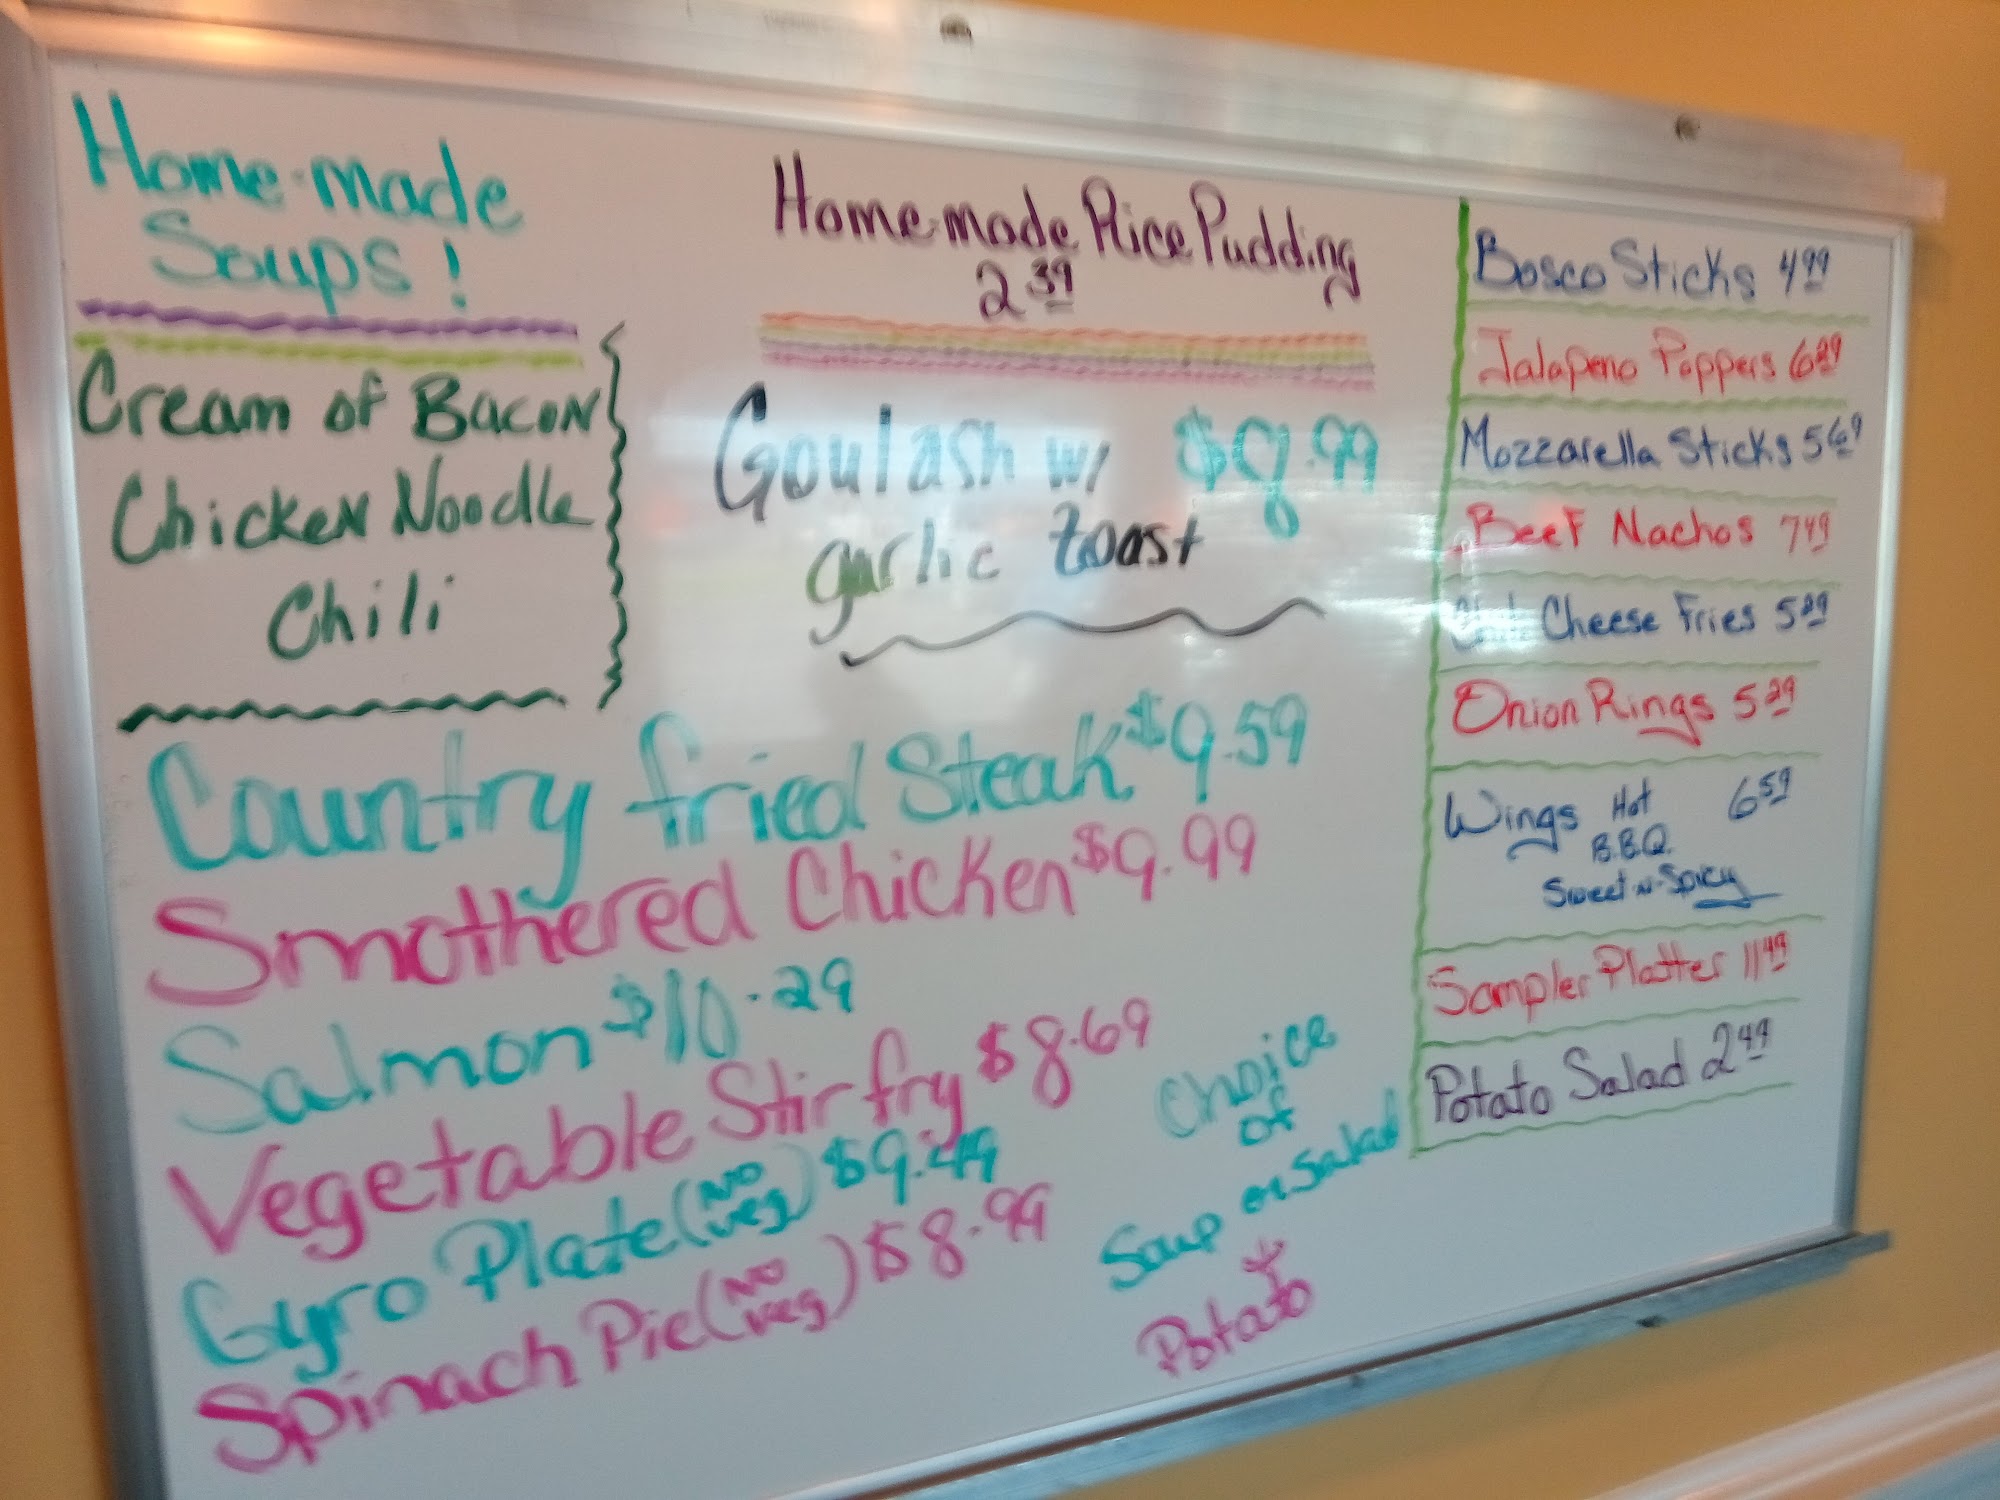 Home-made
Soups!
Cream of Bacon
Chicken Noodle
Chili
Home-made Rice Pudding
2 39
Goulash w/ $8.99
garlic toast
Country fried Steak $9.59
Smothered Chicken $9.99
Salmon $10.29
Vegetable Stir fry $8.69
Gyro Plate (No veg) $9.49
Spinach Pie (No veg) $8.99
Choice
of
Soup or Salad
+
Potato
Bosco Sticks 4 99
Jalapeno Poppers 6 29
Mozzarella Sticks 5 69
Beef Nachos 7 49
Cheese Fries 5 29
Onion Rings 5 29
Wings Hot 6 59
B.B.Q.
Sweet-N-Spicy
Sampler Platter 11 49
Potato Salad 2 49